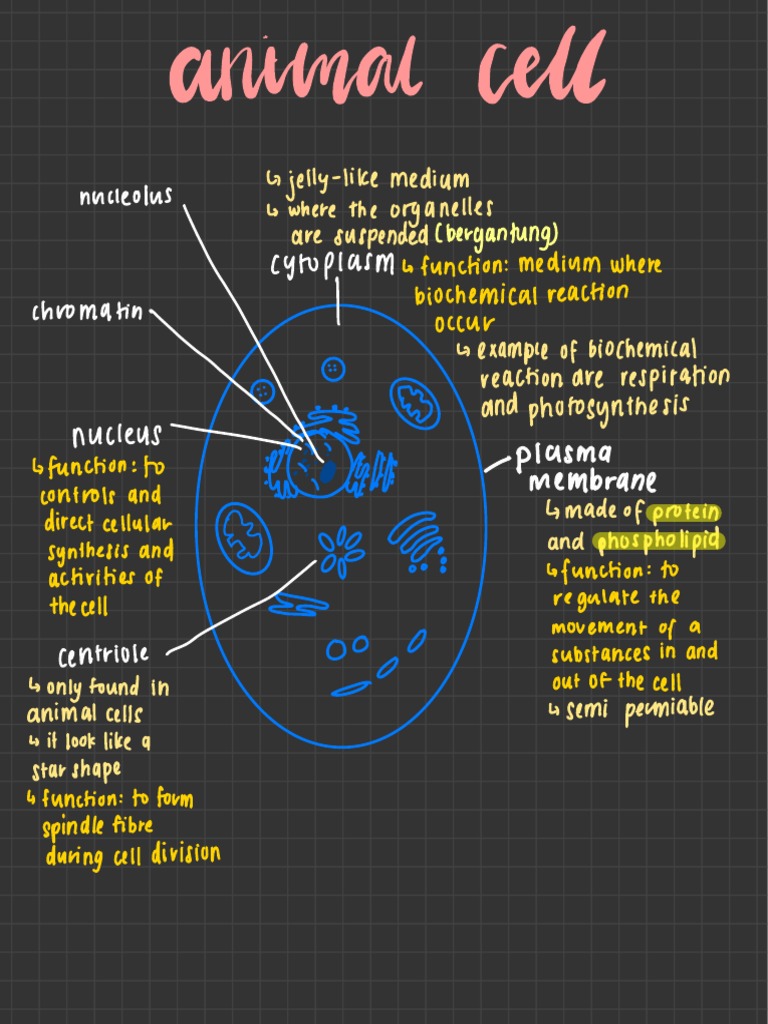 animal cell
nucleolus
↳ jelly-like medium
↳ where the organelles
are suspended (bergantung)
cytoplasm
↳ function: medium where
biochemical reaction
occur
↳ example of biochemical
reaction are respiration
and photosynthesis
chromatin
nucleus
↳ function: to
controls and
direct cellular
synthesis and
activities of
the cell
plasma
membrane
↳ made of protein
and phospholipid
↳ function: to
regulate the
movement of a
substances in and
out of the cell
↳ semi permiable
centriole
↳ only found in
animal cells
↳ it look like a
star shape
↳ function: to form
spindle fibre
during cell division